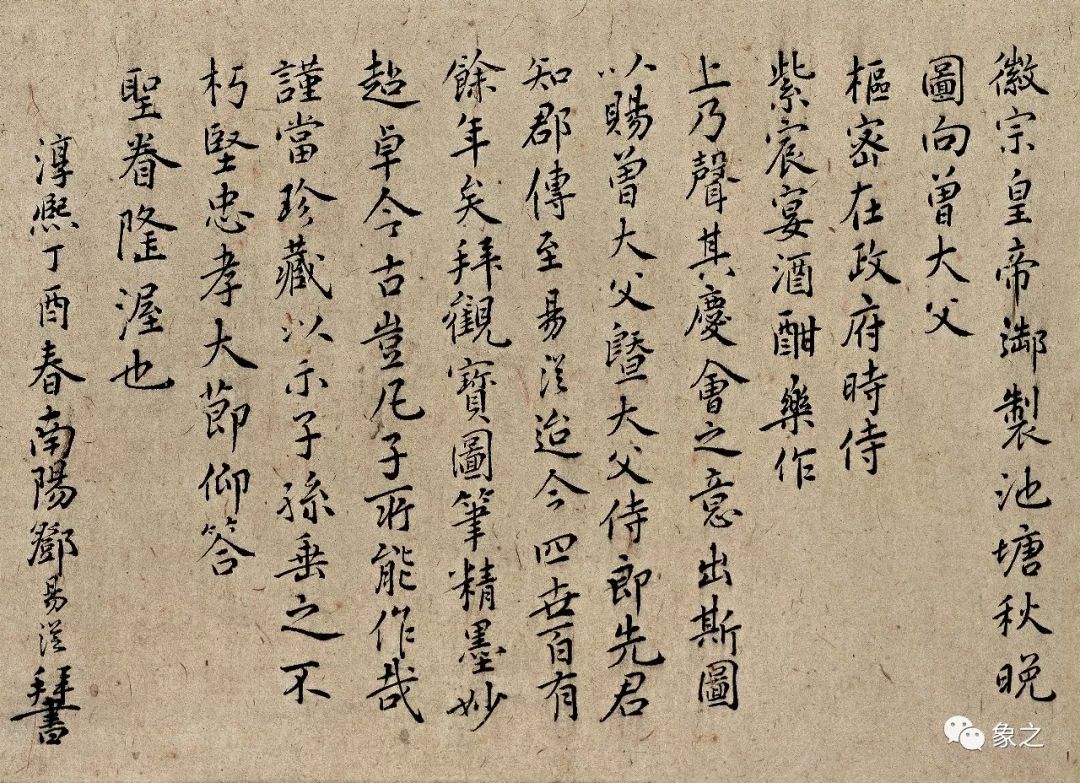 徽宗皇帝御製池塘秋晚
圖向曾大父
樞密在政府時侍
紫宸宴酒酣樂作
上乃聲其慶會之意出斯圖
以賜曾大父暨大父侍郎先君
知郡傳至易從迨今四世百有
餘年矣拜觀寶圖筆精墨妙
超卓今古豈凡子所能作哉
謹當珍藏以示子孫垂之不
朽堅忠孝大節仰答
聖眷隆渥也
淳熙丁酉春南陽鄧易從拜書
象之